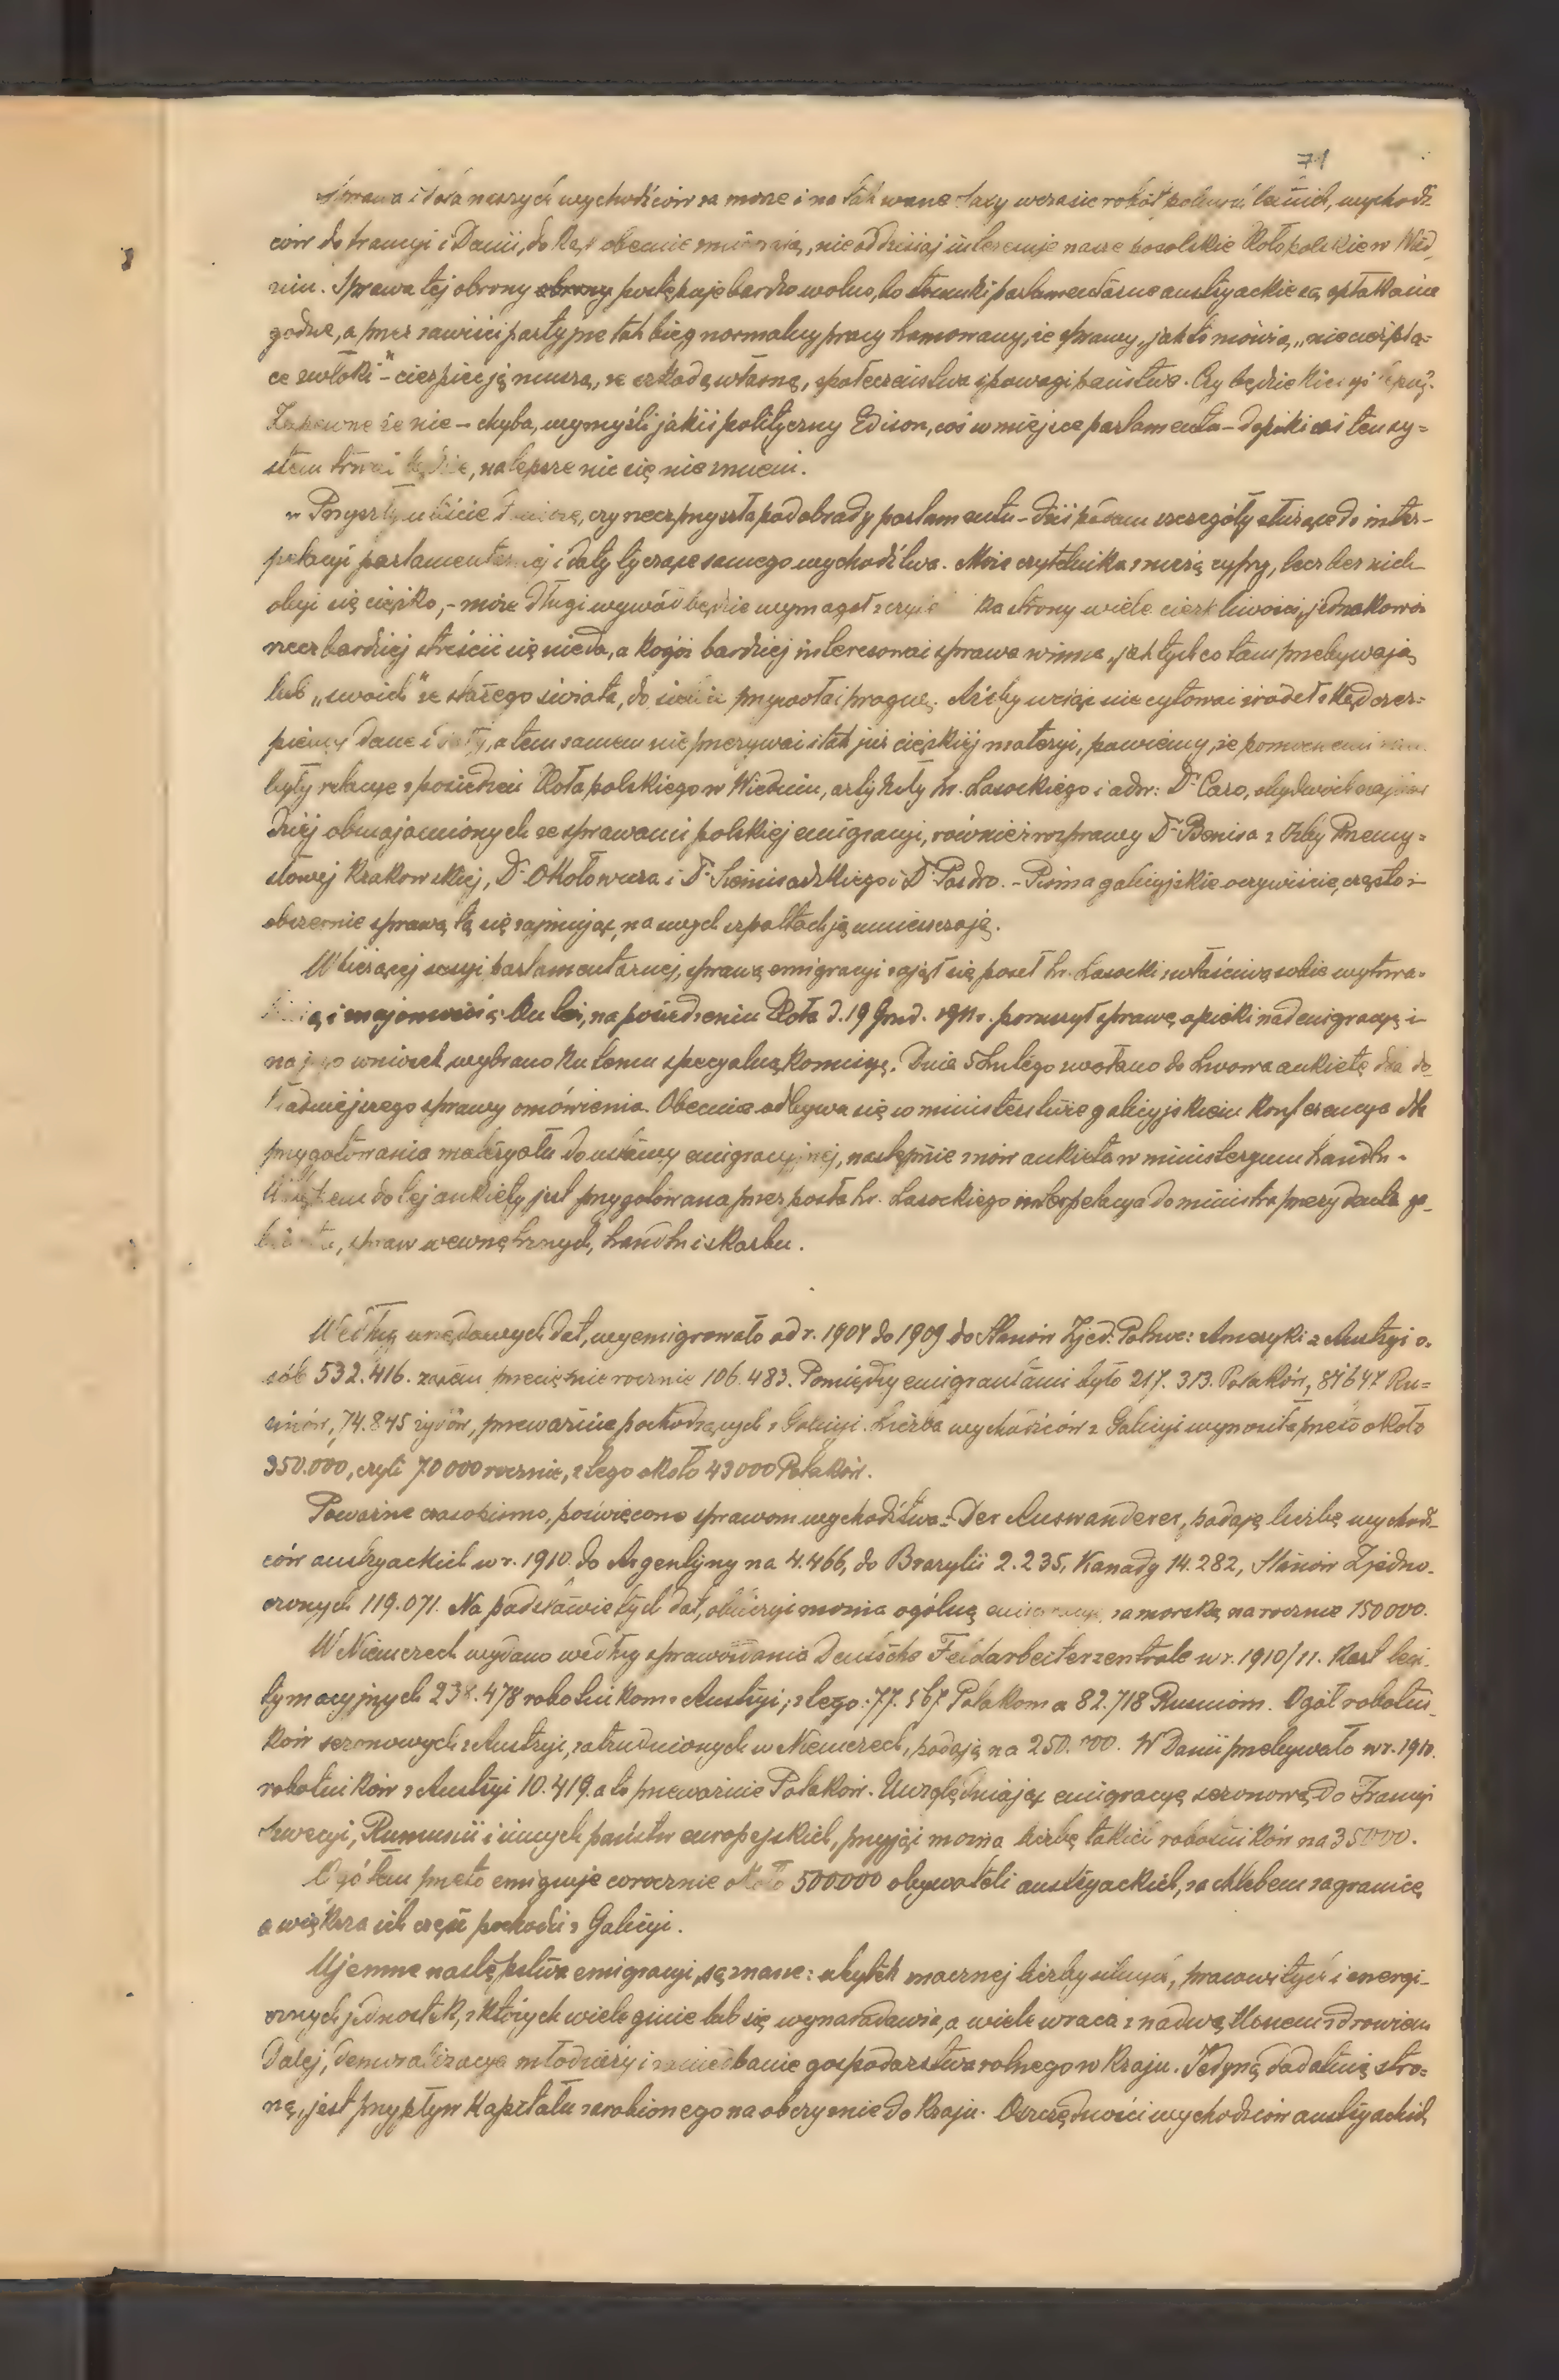 71
Sprawa i dola naszych wychodźców za morze i na tak zwane Saxy w czasie robót polnych letnich, wychodź-
ców do Francyi i Danii, dokąd obecnie zmierzają, nie od dzisiaj interesuje nasze poselskie Koło polskie w Wied-
niu. Sprawa tej obrony obrony postępuje bardzo wolno, bo stosunki parlamentarne austryackie są opłakania
godne, a przez zawiści partyjne tak bieg normalny pracy tamowany, że sprawy, jak to mówią, „niecierpią-
ce zwłoki" – cierpieć ją muszą, ze szkodą własną, społeczeństwa i powagi państwa. Czy będzie kiedyś lepiej?
Zapewne że nie – chyba, wymyśli jakiś polityczny Edison, coś w miejsce parlamentu – dopóki zaś ten sy-
stem trwać będzie, na lepsze nic się nie zmieni.
W Przyszłym liście doniosę, czy rzecz przyszła pod obrady parlamentu – dziś podam szczegóły służące do inter-
pelacyi parlamentarnej i daty tyczące samego wychodźtwa. Może czytelnika znużą cyfry, lecz bez nich
obyć się ciężko, – może długi wywód będzie wymagał z czyjej ka strony wiele cierpliwości, jednakowoż
rzecz bardziej streścić się nie da, a kogóż bardziej interesować sprawa winna, jak tych co tam przebywają
lub „swoich" ze starego świata, do siebie przywołać pragną. Ażeby wciąż nie cytować źródeł skąd czer-
piemy dane i daty, a tem samem nie przerywać i tak już ciężkiej materyi, powiemy, że pomocnemi nam
były relacye z posiedzeń Koła polskiego w Wiedniu, artykuły hr. Lasockiego i adw: Dr Caro, obydwóch najbar
dziej obznajomionych ze sprawami polskiej emigracyi, również rozprawy Dr Benisa z Izby Przemy-
słowej Krakowskiej, Dr Okołowicza i Dr Siemiradzkiego i Dr Pazdro. – Pisma galicyjskie oczywiście, często i
obszernie sprawą tą się zajmując, na swych szpaltach ją umieszczają.
W bieżącej sesyi parlamentarnej, sprawą emigracyi zajął się poseł hr. Lasocki z właściwą sobie wytrwa-
łością i znajomością. Ku temu, na posiedzeniu Koła d. 19 Grud. 1911 r. poruszył sprawę opieki nad emigracyą i
na jego wniosek wybrano ku temu specyalną komisyę. Dnia 5 Lutego zwołano do Lwowa ankietę dla do-
kładniejszego sprawy omówienia. Obecnie odbywa się w ministerstwie galicyjskiem konferencya dla
przygotowania materyału do ustawy emigracyjnej, następnie znów ankieta w ministeryum handlu.
Wstępem do tej ankiety jest przygotowana przez posła hr. Lasockiego interpelacya do ministra prezydenta ga-
binetu, spraw wewnętrznych, handlu i skarbu.
Według urzędowych dat, wyemigrowało od r. 1904 do 1909 do Stanów Zjed: Północ: Ameryki z Austryi o-
sób 532.416. zatem przeciętnie rocznie 106.483. Pomiędzy emigrantami było 217.313. Polaków, 87647 Ru-
sinów, 74.845 żydów, przeważnie pochodzących z Galicyi. Liczba wychodźców z Galicyi wynosiła przeto około
350.000, czyli 70000 rocznie, z tego około 43000 Polaków.
Poważne czasopismo, poświęcone sprawom wychodźtwa: Der Auswanderer, podaje liczbę wychodź-
ców austryackich w r. 1910. do Argentyny na 4.466, do Brazylii 2.235, Kanady 14.282, Stanów Zjedno-
czonych 119.071. Na podstawie tych dat, obliczyć można ogólną emigracyę zamorską na rocznie 150000.
W Niemczech wydano według sprawozdania Deutsche Feldarbeiterzentrale w r. 1910/11. Kart legi-
tymacyjnych 238.478 robotnikom z Austryi, z tego: 77.567 Polakom a 82.718 Rusinom. Ogół robotni-
ków sezonowych z Austryi, zatrudnionych w Niemczech, podają na 250.000. W Danii przebywało w r. 1910.
robotników z Austryi 10.419. a to przeważnie Polaków. Uwzględniając emigracyę sezonową do Francyi
Szwecyi, Rumunii i innych państw europejskich, przyjąć można liczbę takich robotników na 350000.
Ogółem przeto emigruje corocznie około 500000 obywateli austryackich, za chlebem zagranicę
a większa ich część pochodzi z Galicyi.
Ujemne następstwa emigracyi, są znane: ubytek znacznej liczby silnych, pracowitych i energi-
cznych jednostek, z których wiele ginie lub się wynaradawia, a wiele wraca z nadwątlonem zdrowiem
Dalej, demoralizacya młodzieży i zaniedbanie gospodarstwa rolnego w kraju. Jedyną dodatnią stro-
ną, jest przypływ kapitału zarobionego na obczyźnie do kraju. Oszczędności wychodźców austryackich